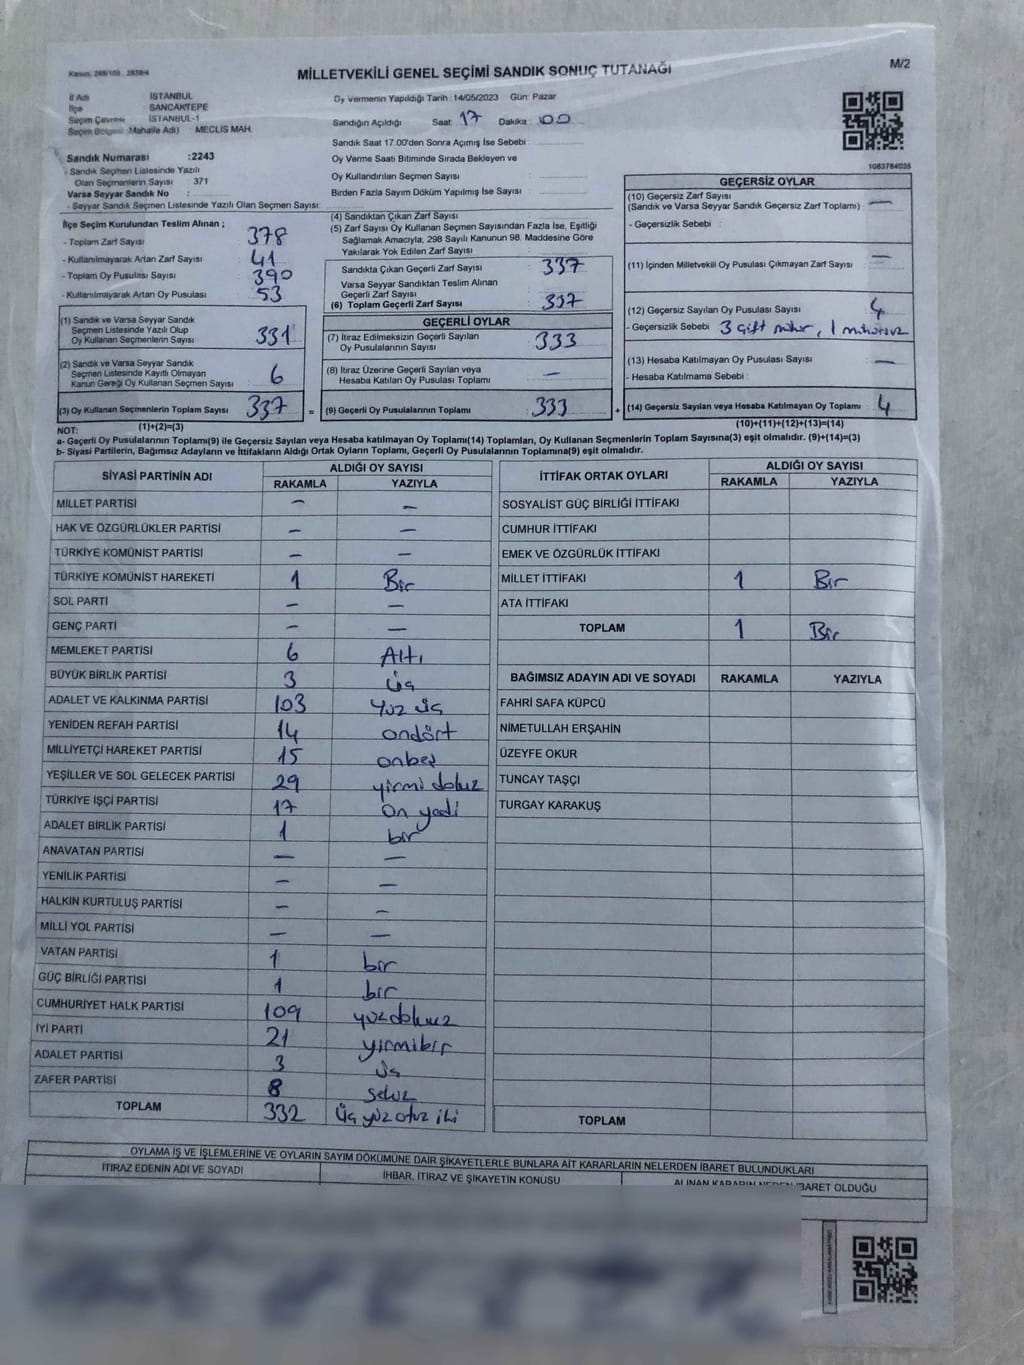 Kanun: 298/105 , 2839/4
MİLLETVEKİLİ GENEL SEÇİMİ SANDIK SONUÇ TUTANAĞI
M/2
İl Adı İSTANBUL
İlçe SANCAKTEPE
Seçim Çevresi İSTANBUL-1
Seçim Bölgesi (Mahalle Adı) MECLİS MAH.
Oy Vermenin Yapıldığı Tarih : 14/05/2023 Gün: Pazar
Sandığın Açıldığı Saat: 17 Dakika : 00
Sandık Saat 17.00'den Sonra Açımış İse Sebebi
Oy Verme Saati Bitiminde Sırada Bekleyen ve
Oy Kullandırılan Seçmen Sayısı
Birden Fazla Sayım Döküm Yapılmış İse Sayısı
1083764035
Sandık Numarası :2243
- Sandık Seçmen Listesinde Yazılı
Olan Seçmenlerin Sayısı 371
Varsa Seyyar Sandık No :
- Seyyar Sandık Seçmen Listesinde Yazılı Olan Seçmen Sayısı:
İlçe Seçim Kurulundan Teslim Alınan ;
- Toplam Zarf Sayısı 378
- Kullanılmayarak Artan Zarf Sayısı 41
- Toplam Oy Pusulası Sayısı 390
- Kullanılmayarak Artan Oy Pusulası 53
(1) Sandık ve Varsa Seyyar Sandık
Seçmen Listesinde Yazılı Olup
Oy Kullanan Seçmenlerin Sayısı 331
(2) Sandık ve Varsa Seyyar Sandık
Seçmen Listesinde Kayıtlı Olmayan
Kanun Gereği Oy Kullanan Seçmen Sayısı 6
(3) Oy Kullanan Seçmenlerin Toplam Sayısı 337 =
(1)+(2)=(3)
(4) Sandıktan Çıkan Zarf Sayısı
(5) Zarf Sayısı Oy Kullanan Seçmen Sayısından Fazla İse, Eşitliği
Sağlamak Amacıyla, 298 Sayılı Kanunun 98. Maddesine Göre
Yakılarak Yok Edilen Zarf Sayısı
Sandıkta Çıkan Geçerli Zarf Sayısı 337
Varsa Seyyar Sandıktan Teslim Alınan
Geçerli Zarf Sayısı
(6) Toplam Geçerli Zarf Sayısı 337
GEÇERLİ OYLAR
(7) İtiraz Edilmeksizin Geçerli Sayılan
Oy Pusulalarının Sayısı 333
(8) İtiraz Üzerine Geçerli Sayılan veya
Hesaba Katılan Oy Pusulası Toplamı —
(9) Geçerli Oy Pusulalarının Toplamı 333 +
GEÇERSİZ OYLAR
(10) Geçersiz Zarf Sayısı
(Sandık ve Varsa Seyyar Sandık Geçersiz Zarf Toplamı) : —
- Geçersizlik Sebebi :
(11) İçinden Milletvekili Oy Pusulası Çıkmayan Zarf Sayısı : —
(12) Geçersiz Sayılan Oy Pusulası Sayısı : 4
- Geçersizlik Sebebi : 3 çift mühür, 1 mühürsüz
(13) Hesaba Katılmayan Oy Pusulası Sayısı : —
- Hesaba Katılmama Sebebi :
(14) Geçersiz Sayılan veya Hesaba Katılmayan Oy Toplamı 4
(10)+(11)+(12)+(13)=(14)
NOT:
a- Geçerli Oy Pusulalarının Toplamı(9) ile Geçersiz Sayılan veya Hesaba katılmayan Oy Toplamı(14) Toplamları, Oy Kullanan Seçmenlerin Toplam Sayısına(3) eşit olmalıdır. (9)+(14)=(3)
b- Siyasi Partilerin, Bağımsız Adayların ve İttifakların Aldığı Ortak Oyların Toplamı, Geçerli Oy Pusulalarının Toplamına(9) eşit olmalıdır.
SİYASİ PARTİNİN ADI ALDIĞI OY SAYISI
RAKAMLA YAZIYLA
MİLLET PARTİSİ — —
HAK VE ÖZGÜRLÜKLER PARTİSİ — —
TÜRKİYE KOMÜNİST PARTİSİ — —
TÜRKİYE KOMÜNİST HAREKETİ 1 Bir
SOL PARTİ — —
GENÇ PARTİ — —
MEMLEKET PARTİSİ 6 Altı
BÜYÜK BİRLİK PARTİSİ 3 üç
ADALET VE KALKINMA PARTİSİ 103 Yüz üç
YENİDEN REFAH PARTİSİ 14 ondört
MİLLİYETÇİ HAREKET PARTİSİ 15 onbeş
YEŞİLLER VE SOL GELECEK PARTİSİ 29 yirmi dokuz
TÜRKİYE İŞÇİ PARTİSİ 17 On yedi
ADALET BİRLİK PARTİSİ 1 bir
ANAVATAN PARTİSİ — —
YENİLİK PARTİSİ — —
HALKIN KURTULUŞ PARTİSİ — —
MİLLİ YOL PARTİSİ — —
VATAN PARTİSİ 1 bir
GÜÇ BİRLİĞİ PARTİSİ 1 bir
CUMHURİYET HALK PARTİSİ 109 yüzdokuz
İYİ PARTİ 21 yirmibir
ADALET PARTİSİ 3 üç
ZAFER PARTİSİ 8 sekiz
TOPLAM 332 üç yüz otuz iki
İTTİFAK ORTAK OYLARI ALDIĞI OY SAYISI
RAKAMLA YAZIYLA
SOSYALİST GÜÇ BİRLİĞİ İTTİFAKI
CUMHUR İTTİFAKI
EMEK VE ÖZGÜRLÜK İTTİFAKI
MİLLET İTTİFAKI 1 Bir
ATA İTTİFAKI
TOPLAM 1 Bir
BAĞIMSIZ ADAYIN ADI VE SOYADI RAKAMLA YAZIYLA
FAHRİ SAFA KÜPCÜ
NİMETULLAH ERŞAHİN
ÜZEYFE OKUR
TUNCAY TAŞÇI
TURGAY KARAKUŞ
TOPLAM
OYLAMA İŞ VE İŞLEMLERİNE VE OYLARIN SAYIM DÖKÜMÜNE DAİR ŞİKAYETLERLE BUNLARA AİT KARARLARIN NELERDEN İBARET BULUNDUKLARI
İTİRAZ EDENİN ADI VE SOYADI İHBAR, İTİRAZ VE ŞİKAYETİN KONUSU ALINAN KARARIN NEDEN İBARET OLDUĞU